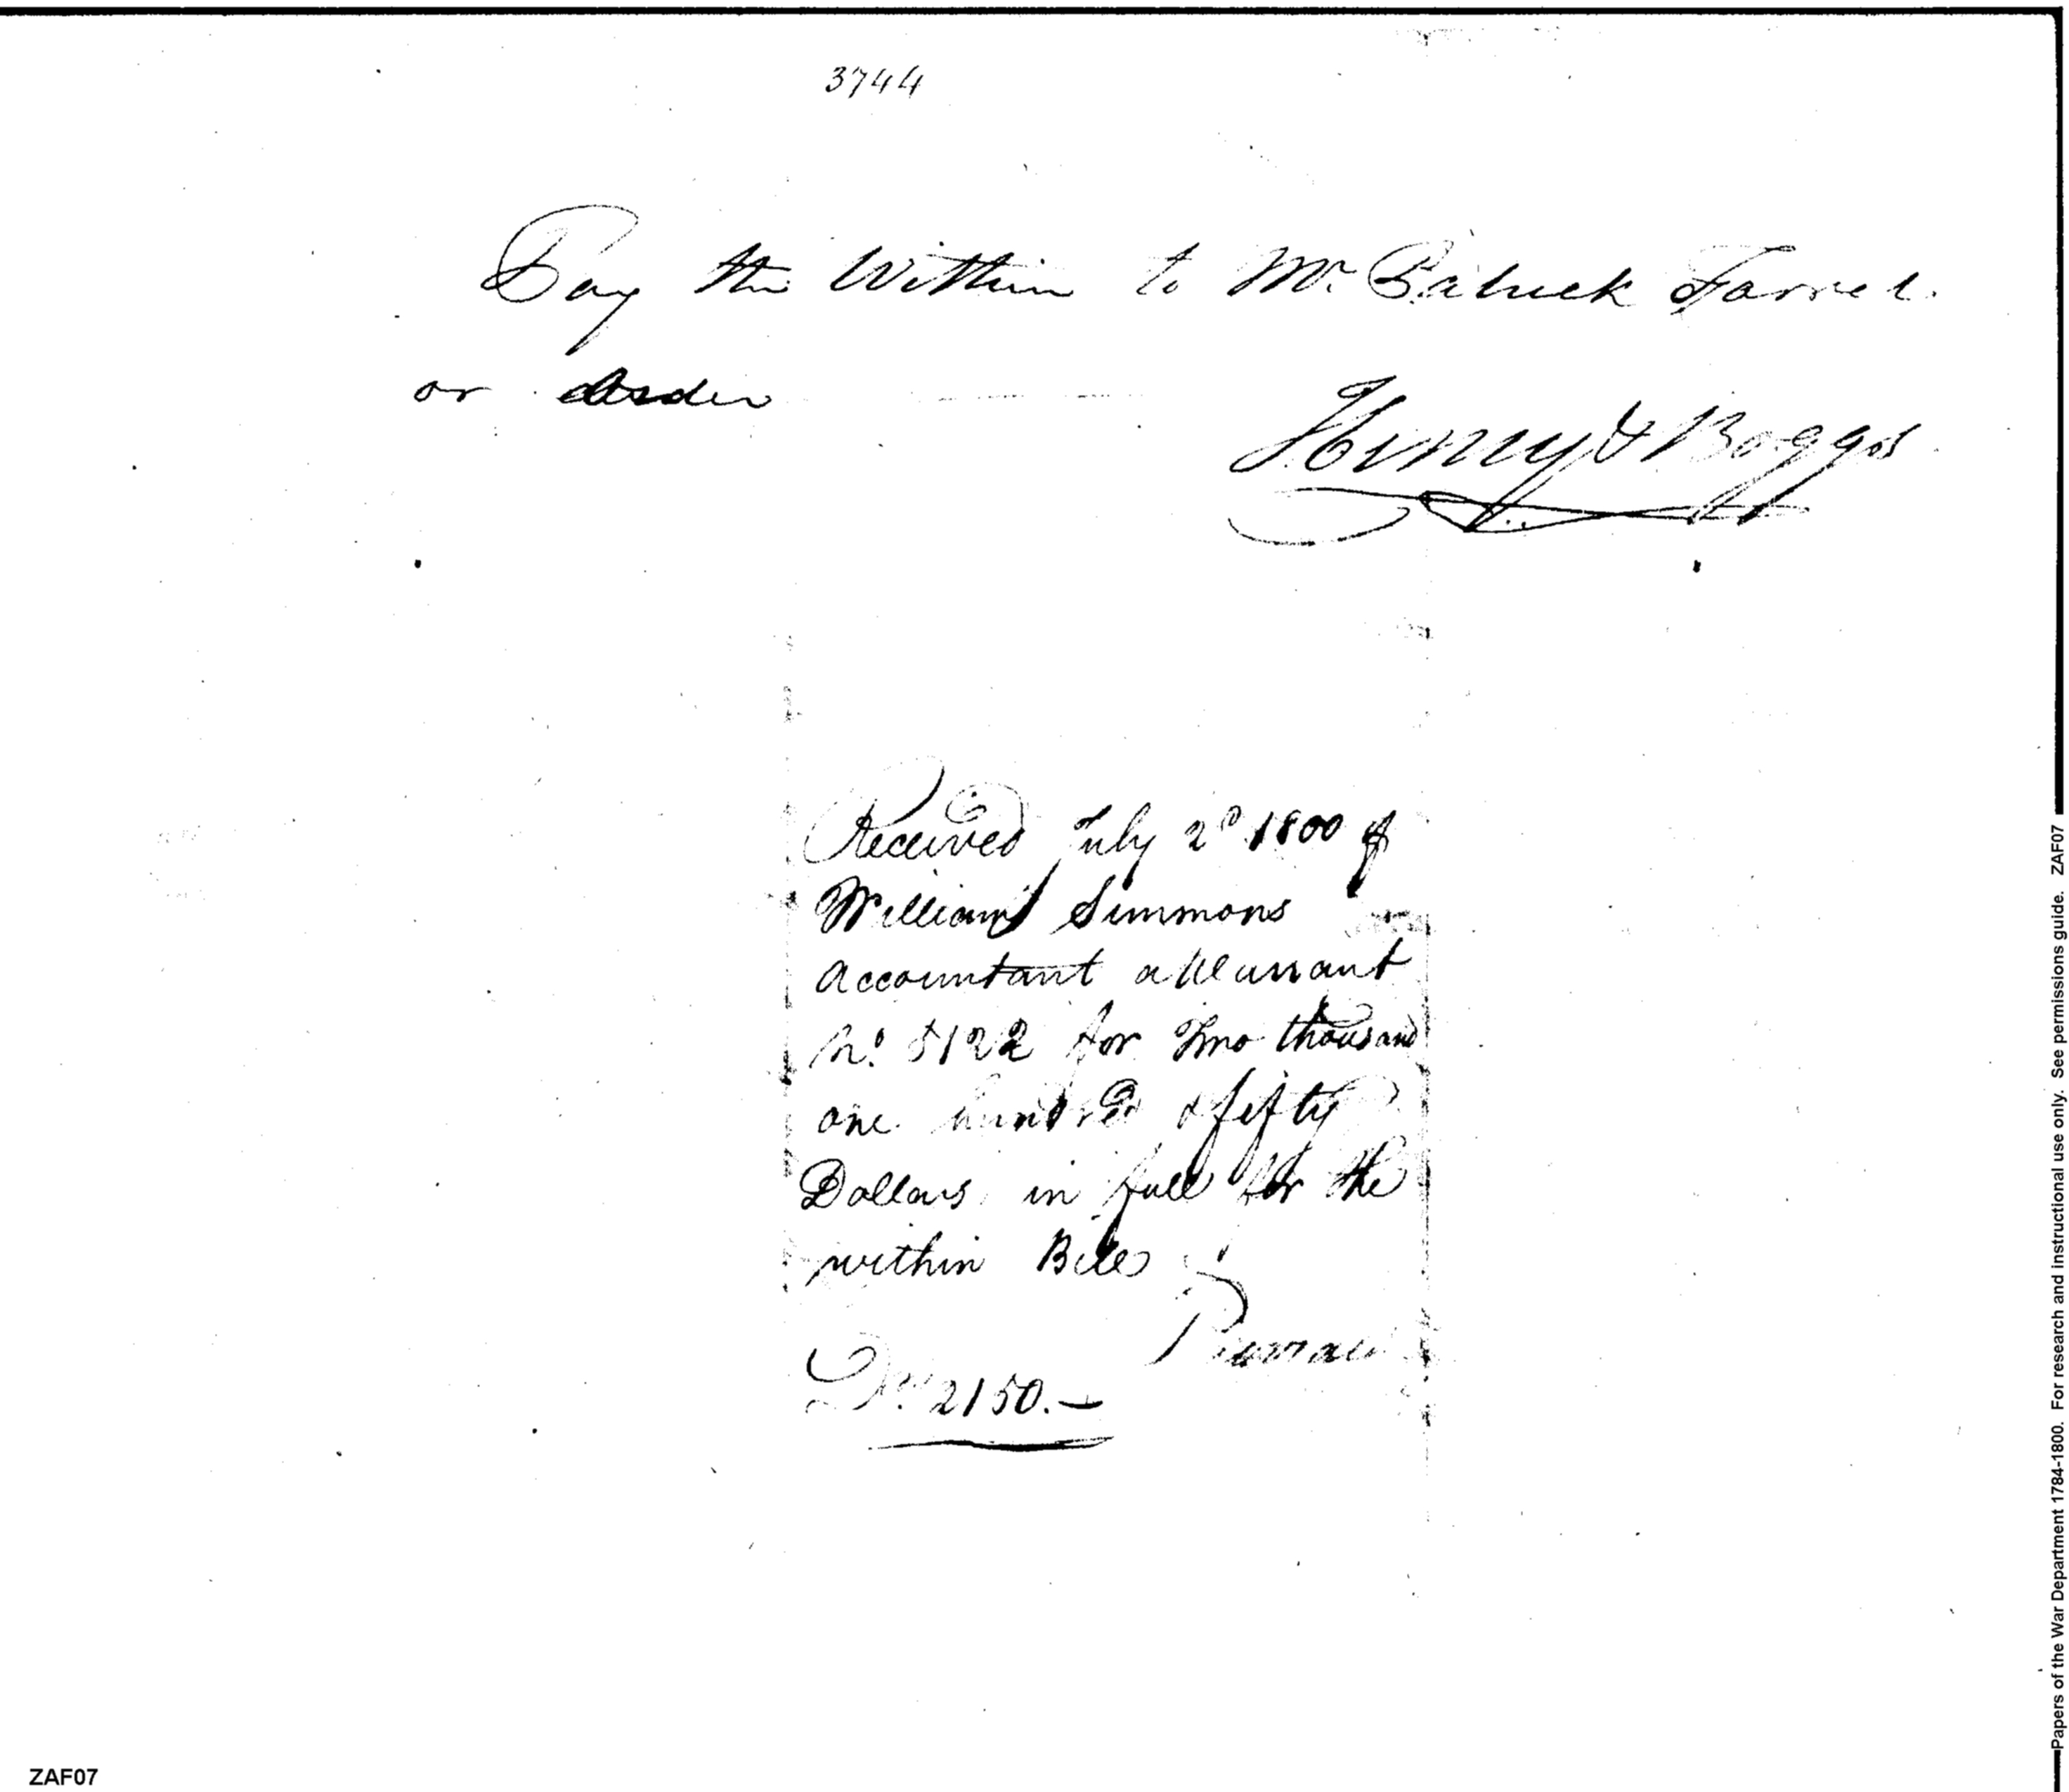 3744
Pay the Within to Mr. Patrick Farrel
or order
Henry & Boggs
Received July 2d 1800 of
William Simmons
Accountant a Warrant
No. 5122 for Two thousand
one hundred & fifty
Dollars in full for the
within Bill
Drs. 2150.—
ZAF07
Papers of the War Department 1784-1800. For research and instructional use only. See permissions guide. ZAF07